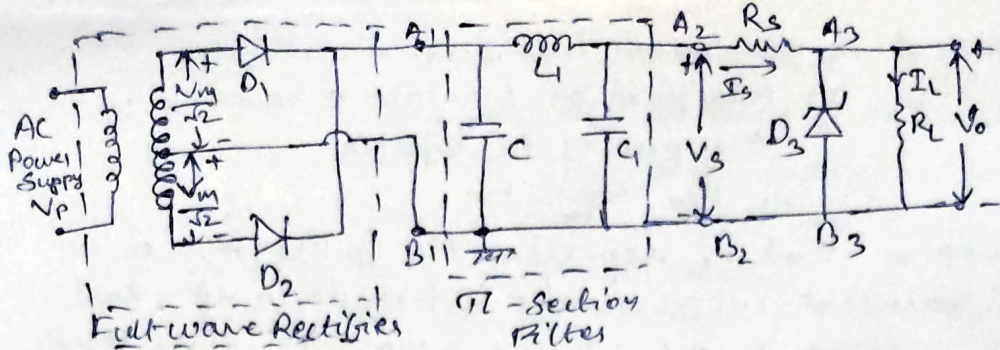 AC
Power
Supply
Vp
+
Vm
√2
+
Vm
√2
-
D1
D2
A1
B1
C
L1
C1
A2
+
Vs
-
B2
Rs
Is
A3
D3
B3
IL
RL
+
Vo
-
Full-wave Rectifier
π-Section
Filter